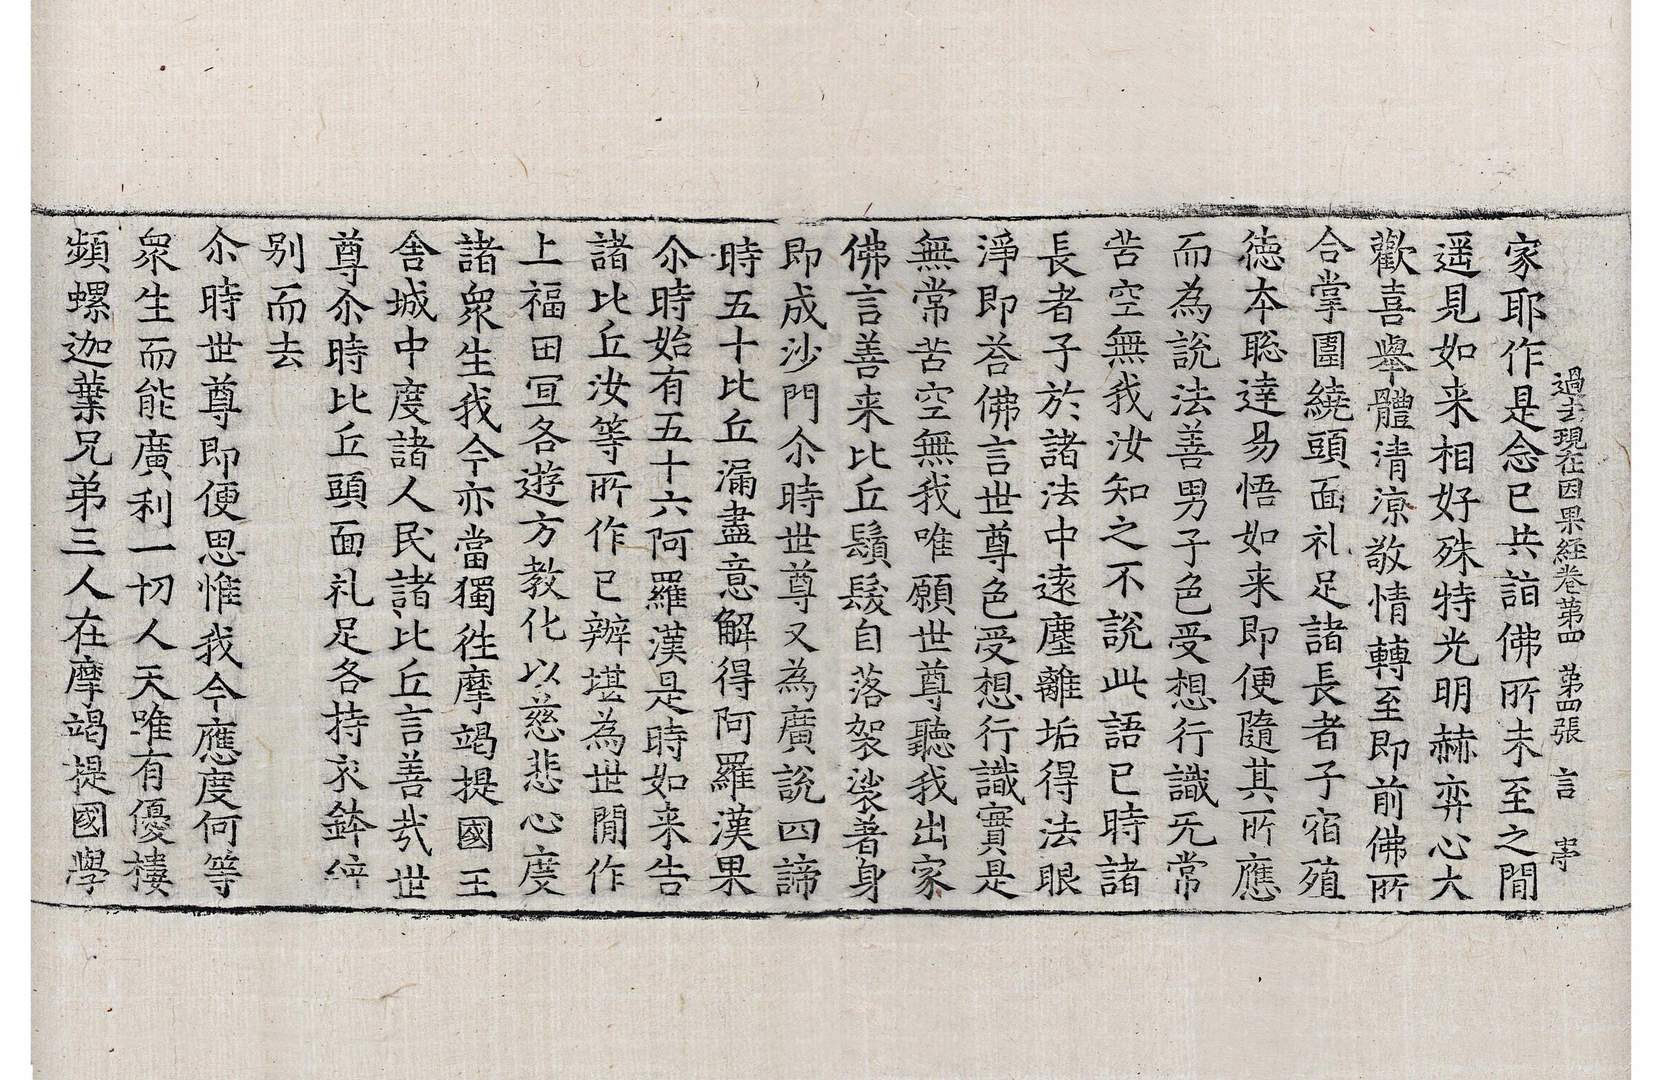 過去現在因果経巻第四 第四張 言
家耶作是念已共詣佛所未至之間
遥見如来相好殊特光明赫弈心大
歡喜舉體清涼敬情轉至即前佛所
合掌圍繞頭面礼足諸長者子宿殖
德本聡達易悟如来即便隨其所應
而為説法善男子色受想行識无常
苦空無我汝知之不說此語已時諸
長者子於諸法中遠塵離垢得法眼
淨即荅佛言世尊色受想行識實是
無常苦空無我唯願世尊聽我出家
佛言善来比丘鬚髮自落袈裟著身
即成沙門尒時世尊又為廣説四諦
時五十比丘漏盡意解得阿羅漢果
尒時始有五十六阿羅漢是時如来告
諸比丘汝等所作已辦堪為世間作
上福田宜各遊方教化以慈悲心度
諸衆生我今亦當獨徃摩竭提國王
舍城中度諸人民諸比丘言善哉世
尊尒時比丘頭面礼足各持衣鉢辝
別而去
尒時世尊即便思惟我今應度何等
衆生而能廣利一切人天唯有優樓
頻螺迦葉兄弟三人在摩竭提國學